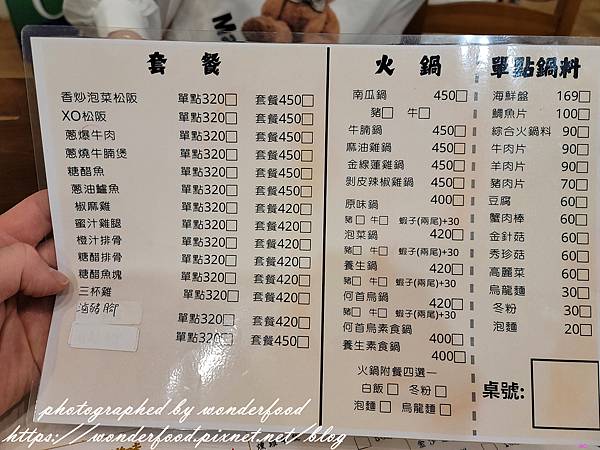 套餐
香炒泡菜松阪 單點320□ 套餐450□
XO松阪 單點320□ 套餐450□
蔥爆牛肉 單點320□ 套餐450□
蔥燒牛腩煲 單點320□ 套餐450□
糖醋魚 單點320□ 套餐450□
蔥油鱸魚 單點320□ 套餐450□
椒麻雞 單點320□ 套餐420□
蜜汁雞腿 單點320□ 套餐420□
橙汁排骨 單點320□ 套餐420□
糖醋排骨 單點320□ 套餐420□
糖醋魚塊 單點320□ 套餐420□
三杯雞 單點320□ 套餐420□
滷豬腳 單點320□ 套餐420□
單點320□ 套餐450□
火鍋
南瓜鍋 450□
豬□ 牛□
牛腩鍋 450□
麻油雞鍋 450□
金線蓮雞鍋 450□
剝皮辣椒雞鍋 450□
原味鍋 400□
豬□ 牛□ 蝦子(兩尾)+30
泡菜鍋 420□
豬□ 牛□ 蝦子(兩尾)+30
養生鍋 420□
豬□ 牛□ 蝦子(兩尾)+30
何首烏鍋 420□
豬□ 牛□ 蝦子(兩尾)+30
何首烏素食鍋 400□
養生素食鍋 400□
火鍋附餐四選一
白飯□ 冬粉□
泡麵□ 烏龍麵□
單點鍋料
海鮮盤 169□
鯛魚片 100□
綜合火鍋料 90□
牛肉片 90□
羊肉片 90□
豬肉片 70□
豆腐 60□
蟹肉棒 60□
金針菇 60□
秀珍菇 60□
高麗菜 60□
烏龍麵 30□
冬粉 30□
泡麵 20□
桌號:
photographed by wonderfood
https://wonderfood.pixnet.net/blog